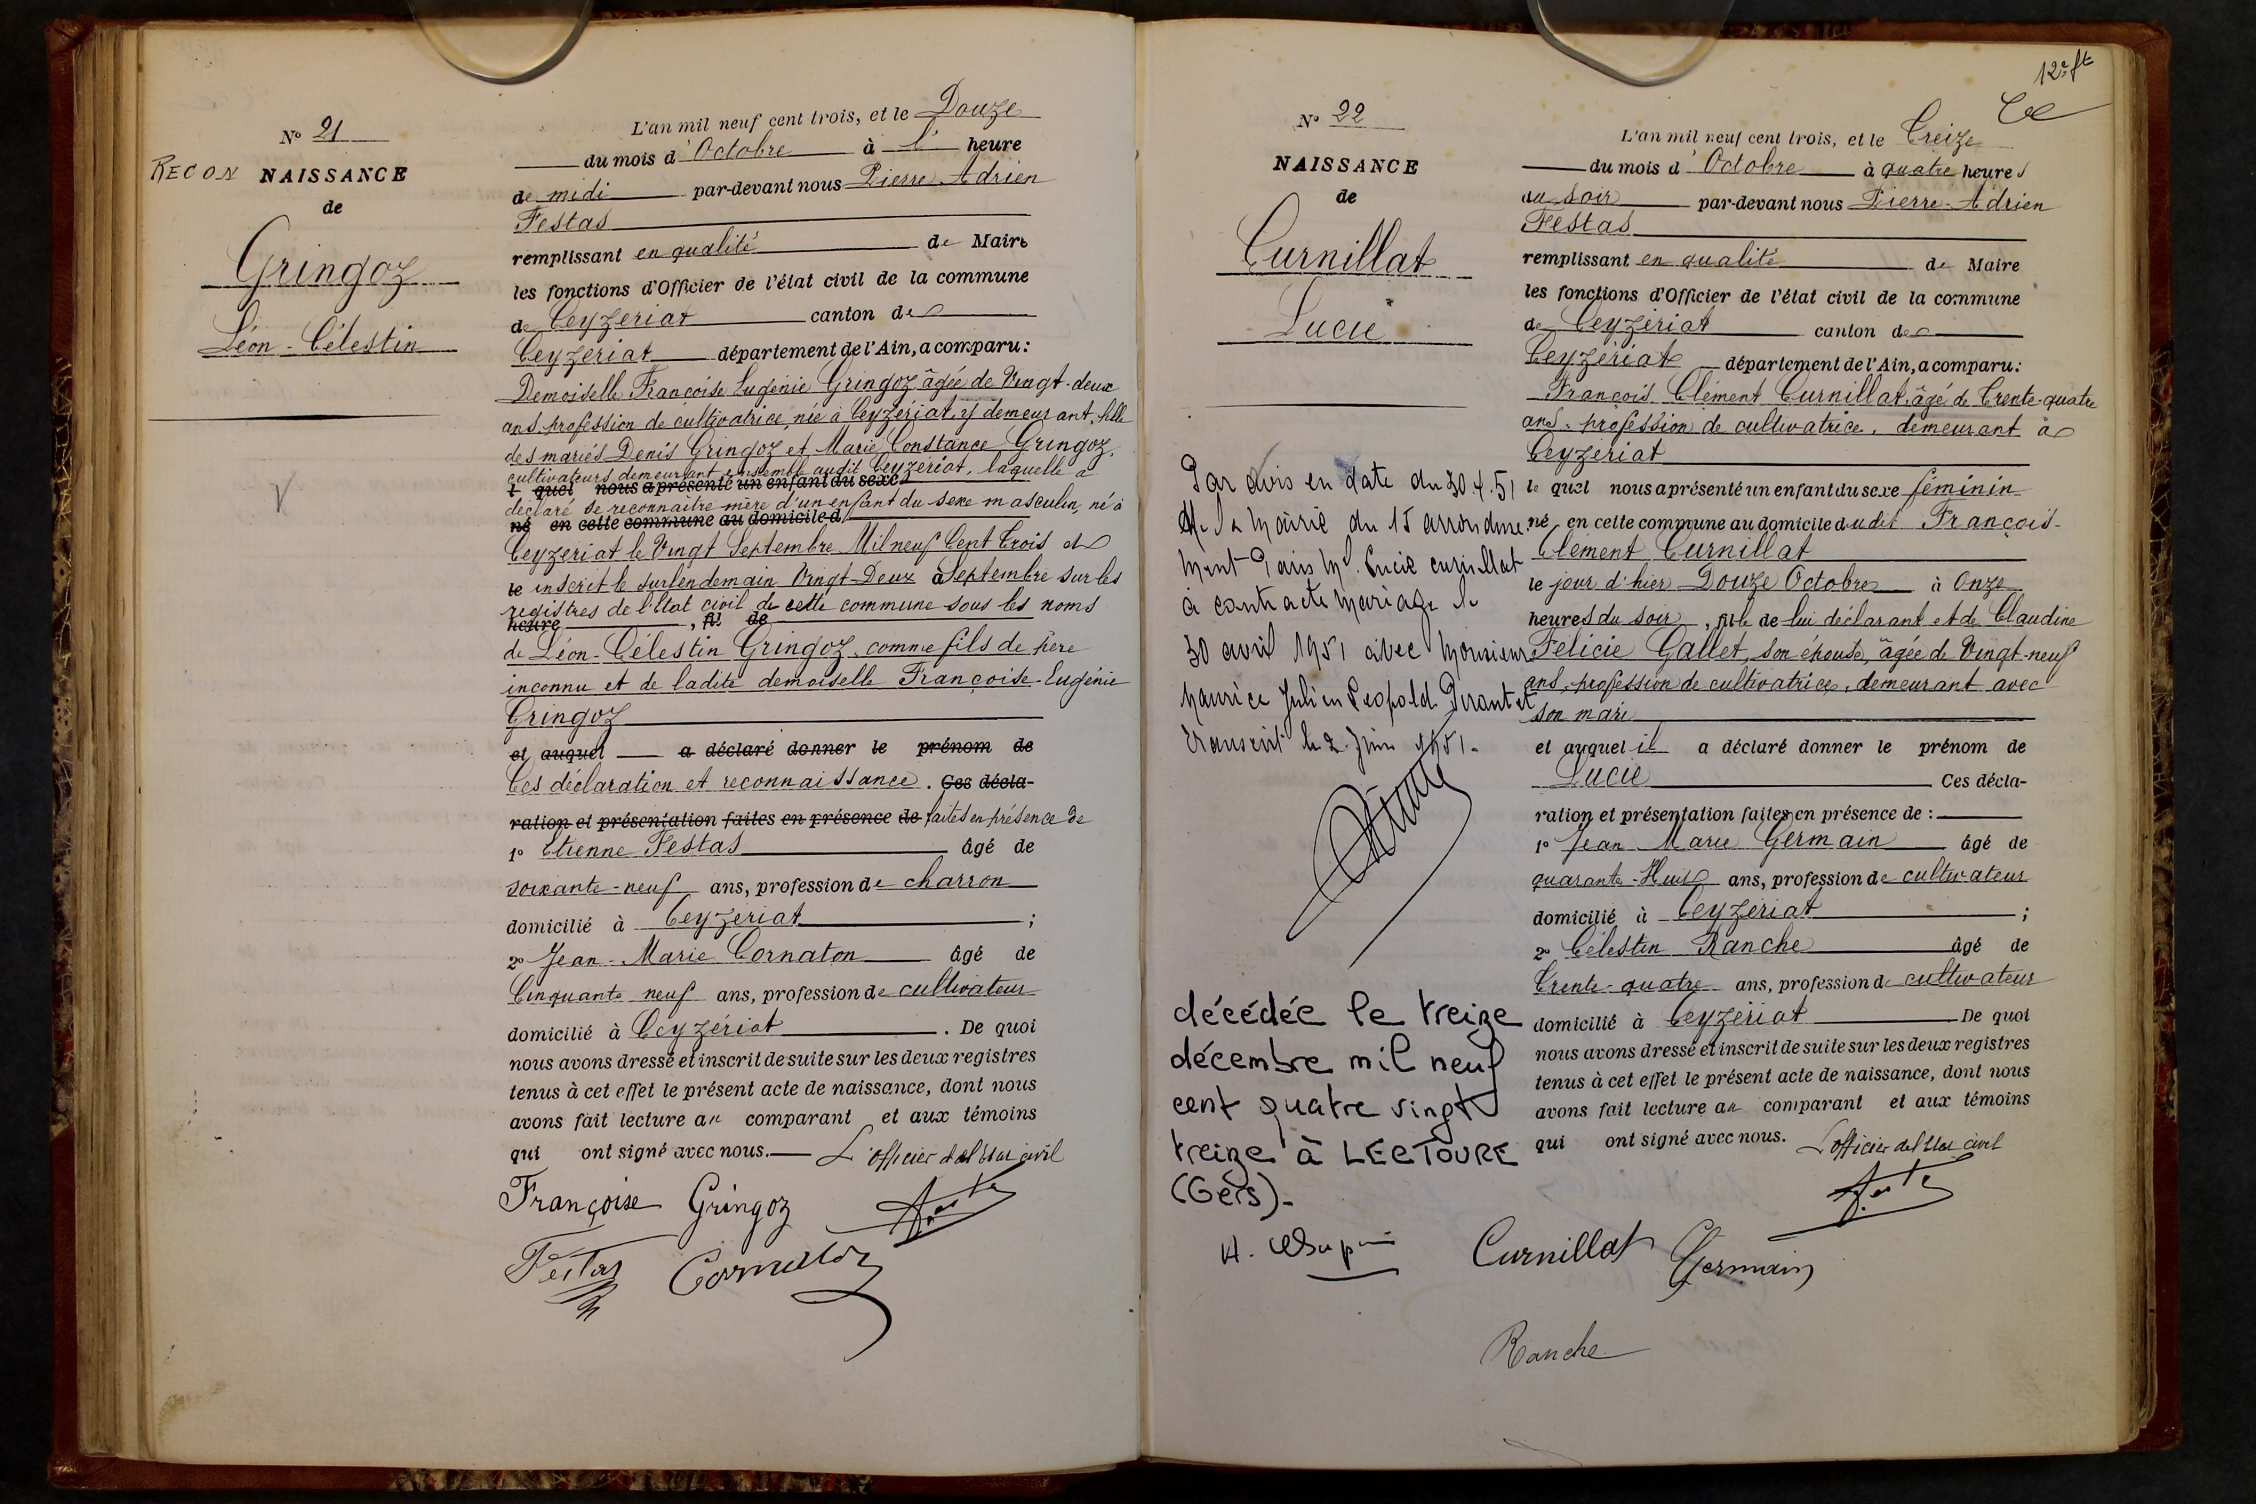 N° 21
RECON NAISSANCE
de
Gringoz
Léon-Célestin
L'an mil neuf cent trois, et le Douze
du mois d'Octobre à l' heure
de midi par-devant nous Pierre Adrien
Festas
remplissant en qualité de Maire
les fonctions d'Officier de l'état civil de la commune
de Ceyzériat canton de
Ceyzériat département de l'Ain, a comparu:
Demoiselle Françoise Eugénie Gringoz âgée de Vingt-deux
ans profession de cultivatrice née à Ceyzériat, y demeurant, fille
des mariés Denis Gringoz et Marie Constance Gringoz,
cultivateurs demeurant ensemble audit Ceyzériat, laquelle a
l quel nous a présenté un enfant du sexe
déclaré se reconnaître mère d'un enfant du sexe masculin, né à
né en cette commune au domicile d
Ceyzériat le Vingt Septembre Mil neuf Cent Trois et
le inscrit le surlendemain Vingt-Deux à Septembre sur les
registres de l'Etat civil de cette commune sous les noms
heure , fil de
de Léon-Célestin Gringoz, comme fils de père
inconnu et de ladite demoiselle Françoise-Eugénie
Gringoz
et auquel a déclaré donner le prénom de
Ces déclaration et reconnaissance. Ces décla-
ration et présentation faites en présence de faites en présence de
1° Etienne Festas âgé de
soixante-neuf ans, profession de charron
domicilié à Ceyzériat ;
2° Jean-Marie Cornaton âgé de
Cinquante neuf ans, profession de cultivateur
domicilié à Ceyzériat . De quoi
nous avons dressé et inscrit de suite sur les deux registres
tenus à cet effet le présent acte de naissance, dont nous
avons fait lecture au comparant et aux témoins
qui ont signé avec nous. L'officier de l'état civil
Françoise Gringoz
Festas Cornaton
12e ft
N° 22
NAISSANCE
de
Curnillat
Lucie
Par avis en date du 30.4.51
de la Mairie du 15 arrondisse
ment Paris Me. Lucie curnillat
à contracté mariage le
30 avril 1951 avec Monsieur
Maurice Julien Leopold
transcrit le 2 Juin 1951.
décédée le treize
décembre mil neuf
cent quatre vingt
treize à LECTOURE
(Gers).
L'an mil neuf cent trois, et le Treize
du mois d'Octobre à quatre heures
du soir par-devant nous Pierre-Adrien
Festas
remplissant en qualité de Maire
les fonctions d'Officier de l'état civil de la commune
de Ceyzériat canton de
Ceyzériat département de l'Ain, a comparu:
François Clément Curnillat, âgé de Trente-quatre
ans, profession de cultivatrice, demeurant à
Ceyzériat
le quel nous a présenté un enfant du sexe féminin
né en cette commune au domicile dudit François-
Clément Curnillat
le jour d'hier Douze Octobre à Onze
heures du soir, fille de lui déclarant et de Claudine
Félicie Gallet, son épouse, âgée de Vingt-neuf
ans, profession de cultivatrice, demeurant avec
son mari
et auquel il a déclaré donner le prénom de
Lucie Ces décla-
ration et présentation faites en présence de :
1° Jean Marie Germain âgé de
quarante-Huit ans, profession de cultivateur
domicilié à Ceyzériat ;
2° Célestin Ranche âgé de
Trente-quatre ans, profession de cultivateur
domicilié à Ceyzériat De quoi
nous avons dressé et inscrit de suite sur les deux registres
tenus à cet effet le présent acte de naissance, dont nous
avons fait lecture au comparant et aux témoins
qui ont signé avec nous. L'officier de l'état civil
Curnillat Germain
Ranche